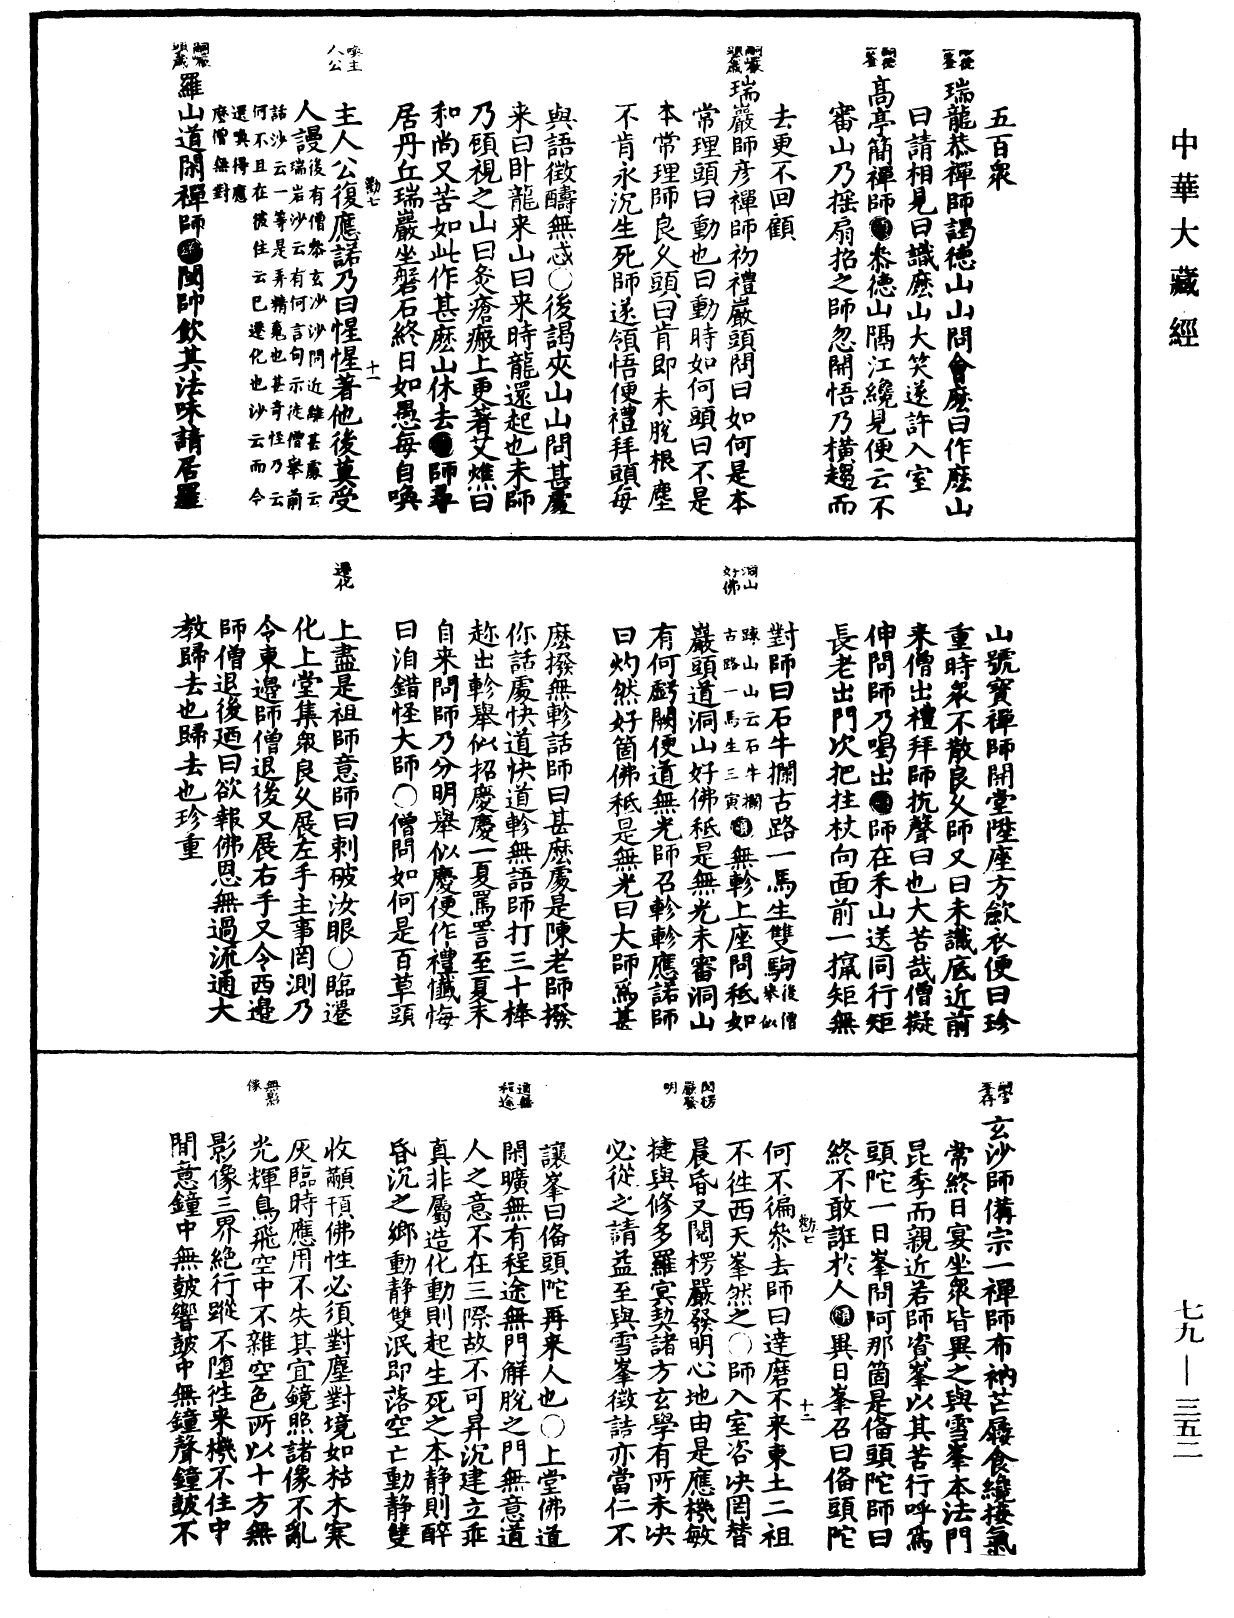 中華大藏經
五百衆
瑞龍恭禪師謁德山山問會麽曰作麽山
曰請相見曰識麽山大笑遂許入室
高亭簡禪師叅德山隔江纔見便云不
審山乃搖扇招之師忽開悟乃橫趨而
去更不回顧
瑞巖師彦禪師初禮巖頭問曰如何是本
常理頭曰動也曰動時如何頭曰不是
本常理師良乆頭曰肯即未脫根塵
不肯永沉生死師遂領悟便禮拜頭每
與語徵醻無忒○後謁夾山山問甚處
来曰卧龍来山曰来時龍還起也未師
乃頋視之山曰灸瘡瘢上更著艾燋曰
和尚又苦如此作甚麽山休去師尋
居丹丘瑞巖坐磐石終日如愚每自喚
喚主人公
主人公復應諾乃曰惺惺著他後莫受
人謾後有僧叅玄沙沙問近離甚處云
瑞岩沙云有何言句示徒僧舉前
話沙云一等是弄精䰟也甚奇怪乃云
何不且在彼住云已遷化也沙云而今
還喚得應
麽僧無對
羅山道閑禪師閩帥飲其法味請居羅
山號寶禪師開堂陞座方歛衣便曰珍
重時衆不散良乆師又曰未識底近前
来僧出禮拜師抗聲曰也大苦哉僧擬
伸問師乃喝出師在禾山送同行矩
長老出門次把拄杖向面前一攛矩無
對師曰石牛攔古路一馬生雙駒後僧舉似
踈山山云石牛攔
古路一馬生三寅
無軫上座問秪如
洞山好佛
巖頭道洞山好佛秪是無光未審洞山
有何虧闕便道無光師召軫軫應諾師
曰灼然好箇佛秪是無光曰大師爲甚
麽撥無軫話師曰甚麽處是陳老師撥
你話處快道快道軫無語師打三十棒
趂出軫舉似招慶慶一夏罵詈至夏末
自来問師乃分明舉似慶便作禮懺悔
曰洎錯怪大師○僧問如何是百草頭
上盡是祖師意師曰刺破汝眼○臨遷
遷化
化上堂集衆良乆展左手主事罔測乃
令東邊師僧退後又展右手又令西邊
師僧退後廼曰欲報佛恩無過流通大
教歸去也歸去也珍重
玄沙師備宗一禪師布衲芒屨食纔接氣
常終日宴坐衆皆異之與雪峯本法門
昆季而親近若師資峯以其苦行呼爲
頭陀一日峯問阿那箇是俻頭陀師曰
終不敢誑扵人異日峯召曰俻頭陀
何不徧叅去師曰達磨不来東土二祖
不徃西天峯然之○師入室咨决罔替
閱楞嚴發明
晨昏又閱楞嚴發明心地由是應機敏
捷與修多羅㝠契諸方玄學有所未决
必從之請益至與雪峯徵詰亦當仁不
讓峯曰俻頭陀再来人也○上堂佛道
閑曠無有程途無門解脫之門無意道
人之意不在三際故不可昇沉建立乖
真非屬造化動則起生死之本静則醉
昏沉之鄉動静雙泯即落空亡動静雙
收顢頇佛性必須對塵對境如枯木寒
灰臨時應用不失其宜鏡照諸像不亂
無影像
光輝鳥飛空中不雜空色所以十方無
影像三界絕行蹤不墮徃来機不住中
間意鐘中無皷響皷中無鐘聲鐘皷不
七九—三五二